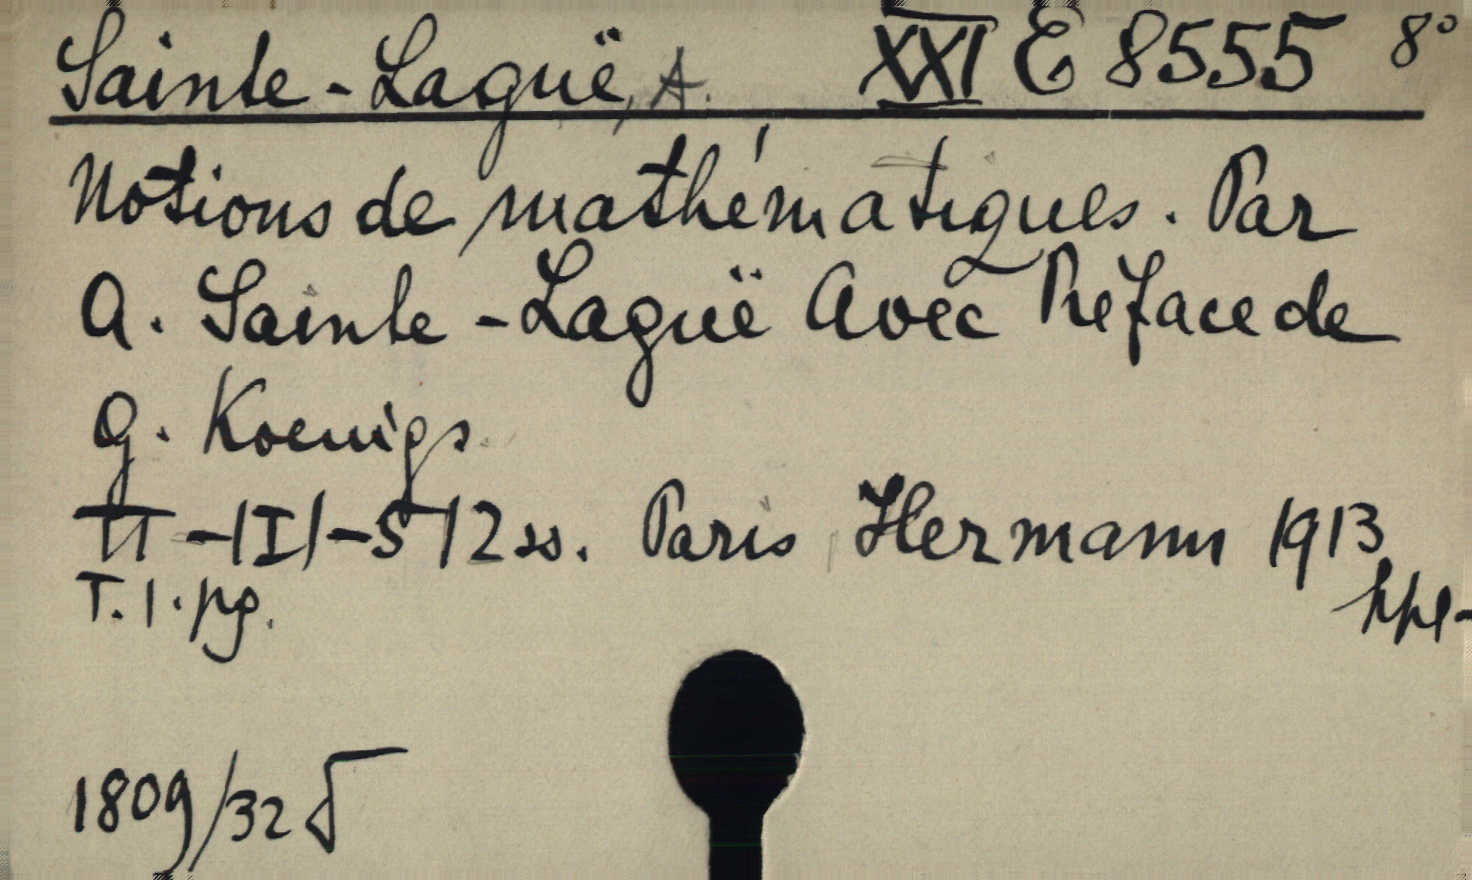 Sainte-Laguë, A. XXI E 8555 8°
Notions de mathématiques. Par
A. Sainte-Laguë Avec Préface de
G. Koenigs.
II-|I|-512 ss. Paris Hermann 1913
T. 1. pg.
1809/32